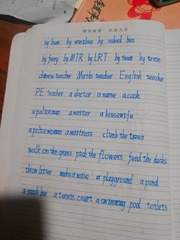 by bus by minibus by school bus
by ferry by MTR by LRT by tram by train
chinese teacher Maths teacher English teacher
PE teacher a doctor a nurse a cook
a policeman a waiter a housewife
a policewoman a waitress climb the trees
walk on the grass pick the flowers feed the ducks
throw litter make a noise a playground a pond
a snack bar a tennis court a swimming pool toilets